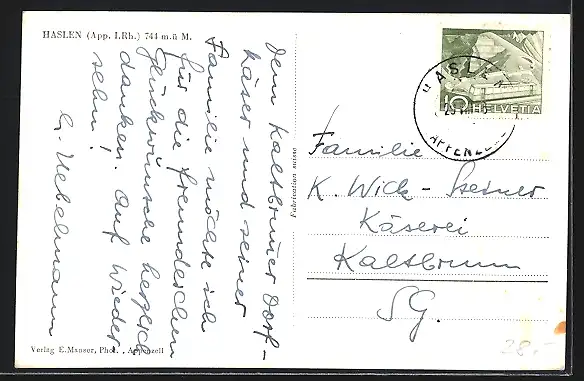 HASLEN (App. I.Rh.) 744 m.ü M.
Dem Kaltbrunner Dorf-
käser und seiner
Familie möchte ich
für die freundlichen
Glückwünsche herzlich
danken. Auf Wieder
sehn!
Verlag E. Manser, Phot., Appenzell
Fabrication suisse
HASLEN
APPENZELL
10 HELVETIA
Familie
K. Wick-Steiner
Käserei
Kaltbrunn
SG.
28.-